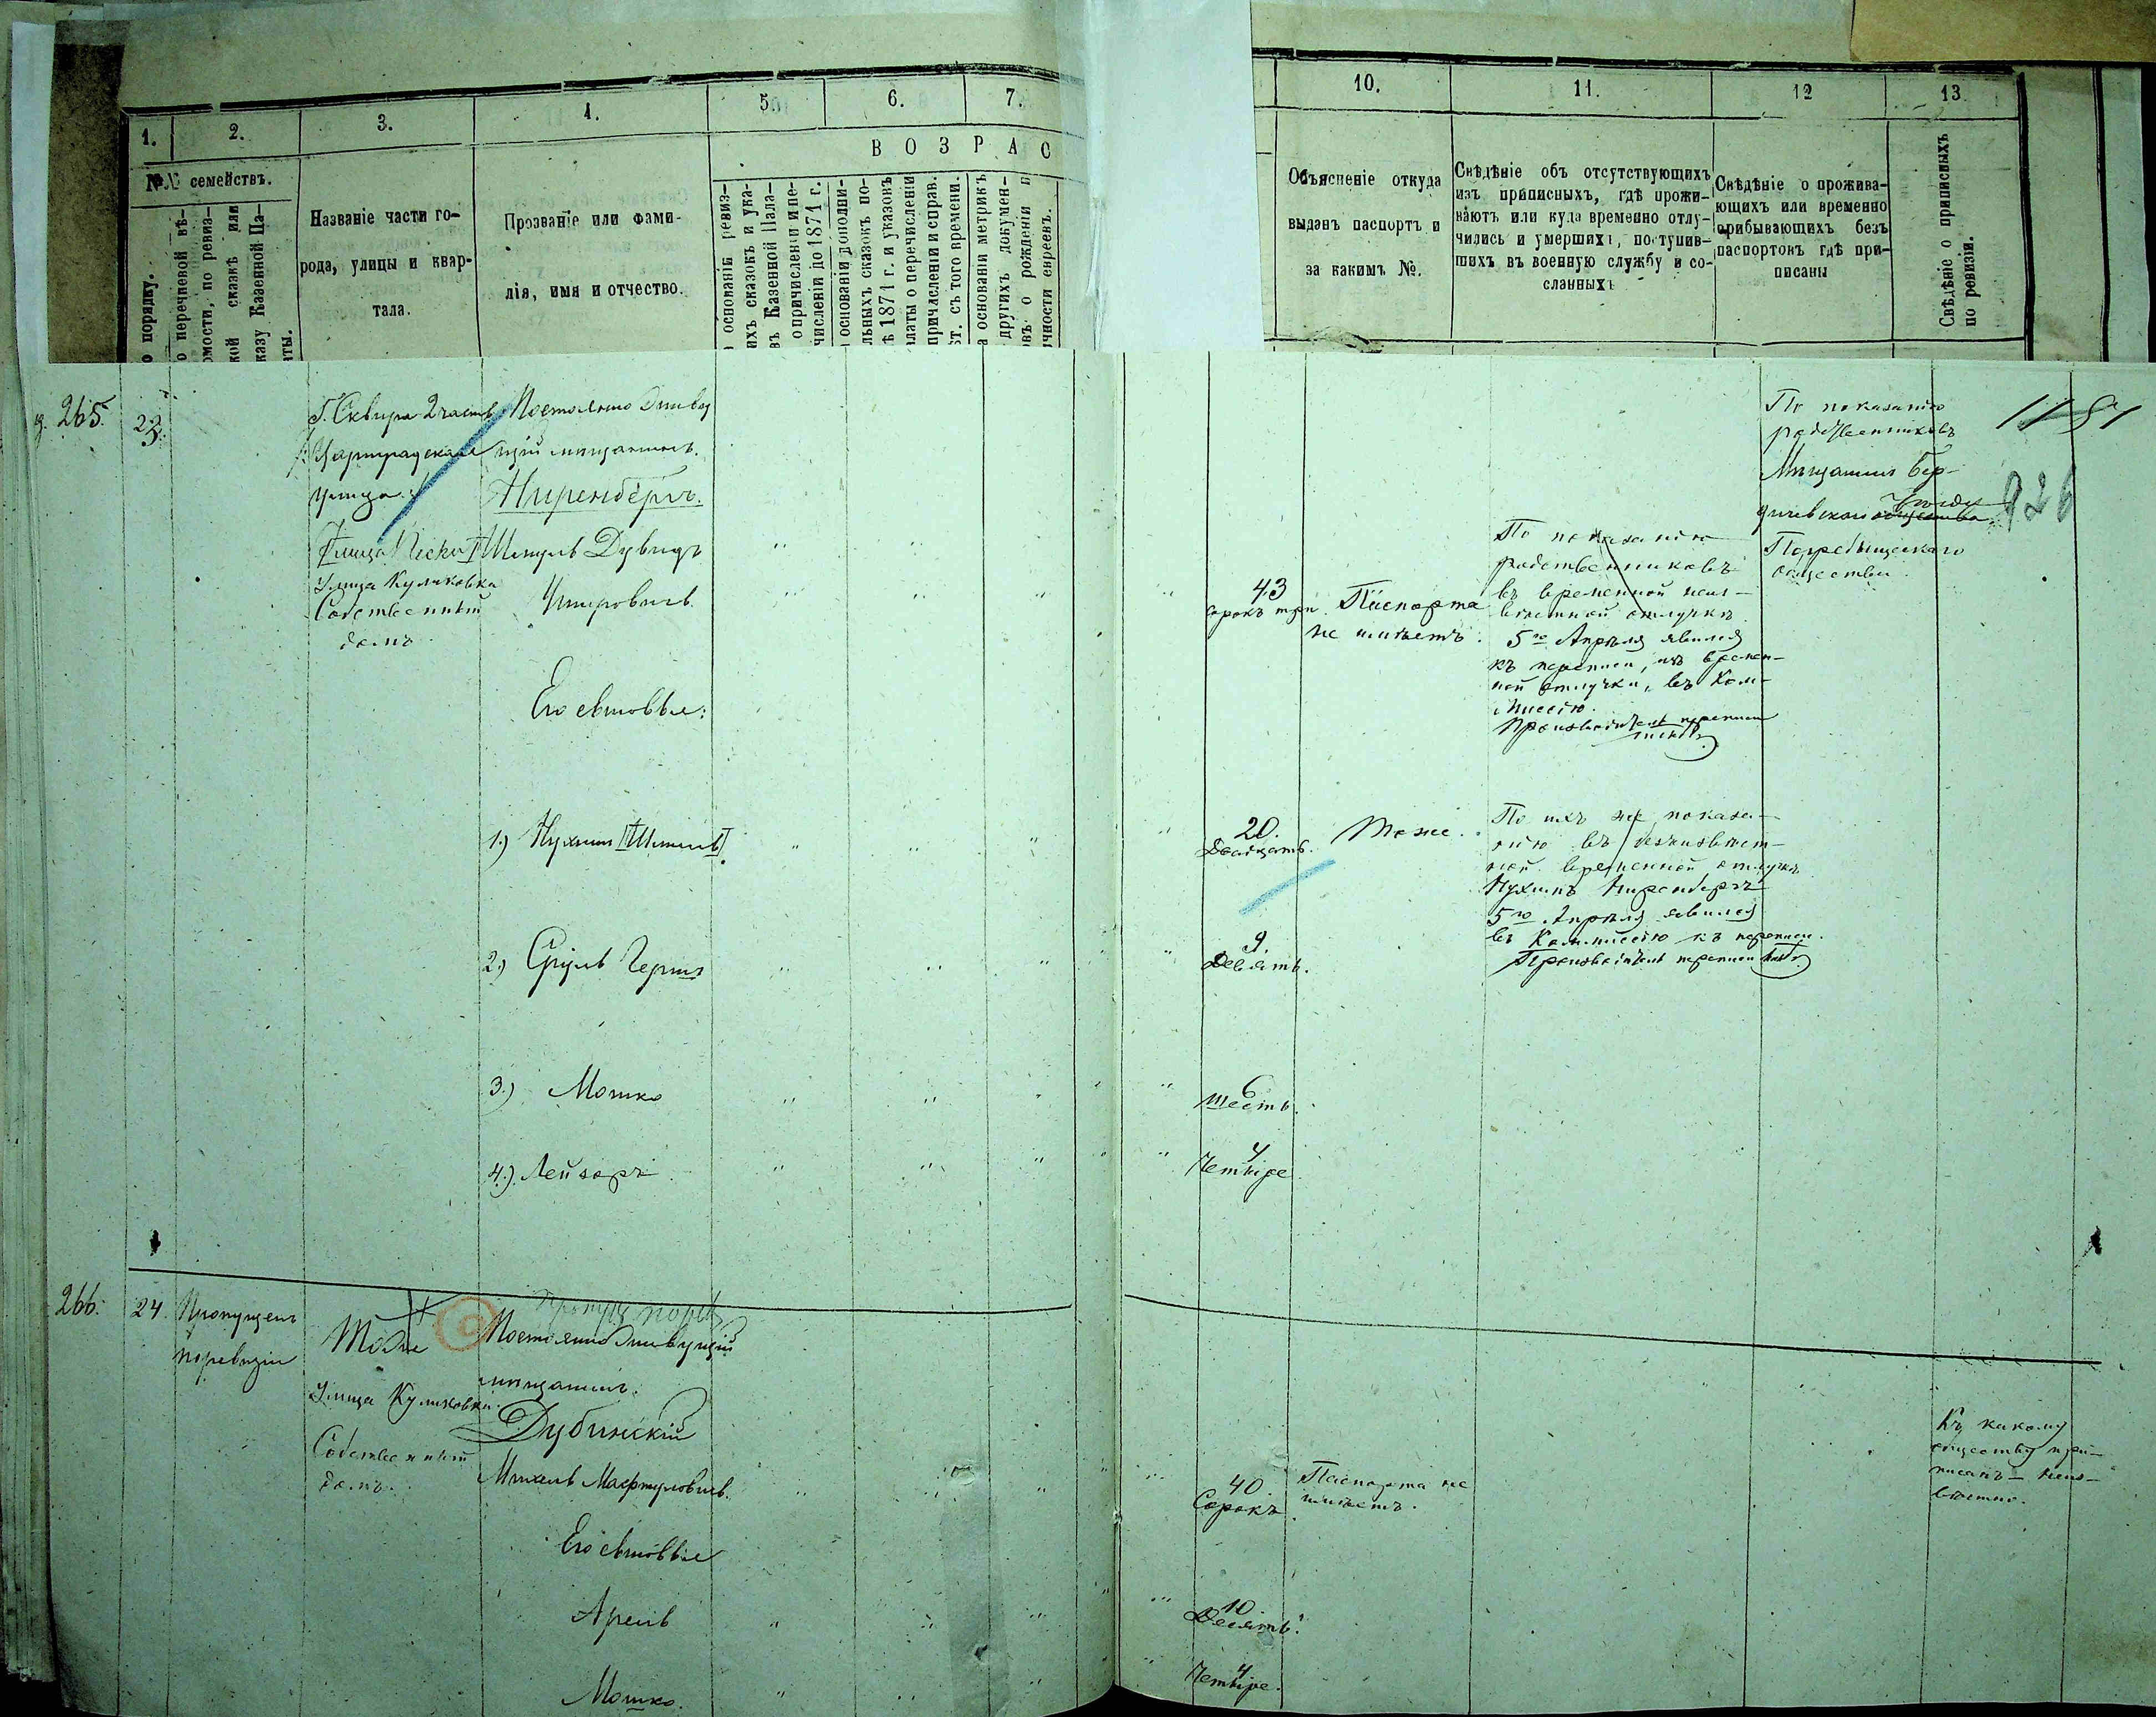 1.
2.
3.
4.
5.
6.
7.
10.
11.
12
13
В О З Р А С
№№ семействъ.
о порядку.
о перечневой вѣ-
омости, по ревиз-
кой сказкѣ или
казу Казенной Па-
аты.
Названіе части го-
рода, улицы и квар-
тала.
Прозваніе или фами-
лія, имя и отчество.
основаніи ревиз-
ихъ сказокъ и ука-
въ Казенной Пала-
о причисленіи и пе-
численіи до 1871 г.
основаніи дополни-
льныхъ сказокъ по-
ѣ 1871 г. и указовъ
латы о перечисленіи
причисленіи и справ.
ст. съ того времени.
а основаніи метрикъ
другихъ докумен-
овъ о рожденіи и
ичности евреевъ.
Объясненіе откуда
выданъ паспортъ и
за какимъ №.
Свѣдѣніе объ отсутствующихъ
изъ приписныхъ, гдѣ прожи-
ваютъ или куда временно отлу-
чились и умершихъ, поступив-
шихъ въ военную службу и со-
сланныхъ
Свѣдѣніе о прожива-
ющихъ или временно
прибывающихъ безъ
паспортовъ гдѣ при-
писаны
Свѣдѣніе о приписныхъ
по ревизіи.
265.
23.
Г. Сквира 2 часть
улица.
Улица Пески
Улица Куликовка
Собственный
домъ.
Постоянно живу
щій мѣщанинъ.
Ниренбергъ.
Шмуль Дувидъ
Его сыновья:
1.) Нухимъ Шмуль
2.) Сруль Герш
3.) Мошко
4.) Лейзоръ
43
сорокъ три
Паспорта
не имѣетъ.
По показанію
родственниковъ
въ временной неиз-
вѣстной отлучкѣ
5го Апрѣля явился
къ переписи, изъ времен-
ной отлучки, въ Ком-
миссію.
Производитель переписи
По показанію
родственниковъ
Мѣщанинъ Бер-
дичевскаго уѣзда
Погребыщенскаго
общества.
1181
926
20.
Двадцать.
Тоже.
По ихъ же показа-
нію въ неизвѣст-
ной временной отлучкѣ
Нухимъ Ниренбергъ
5го Апрѣля явился
въ Коммиссію къ переписи.
Производитель переписи
9.
Девять.
6
шесть.
4
Четыре
266.
24
Пропущенъ
по ревизіи
Тоже
Улица Куликовка.
Собственный
домъ.
Постоянно живущій
мѣщанинъ.
Дубинскій
Михель
Его сыновья
Арель
Мошко.
40.
Сорокъ.
Паспорта не
имѣетъ.
Къ какому
обществу при-
писанъ – неиз-
вѣстно.
10.
Десять.
4
Четыре.